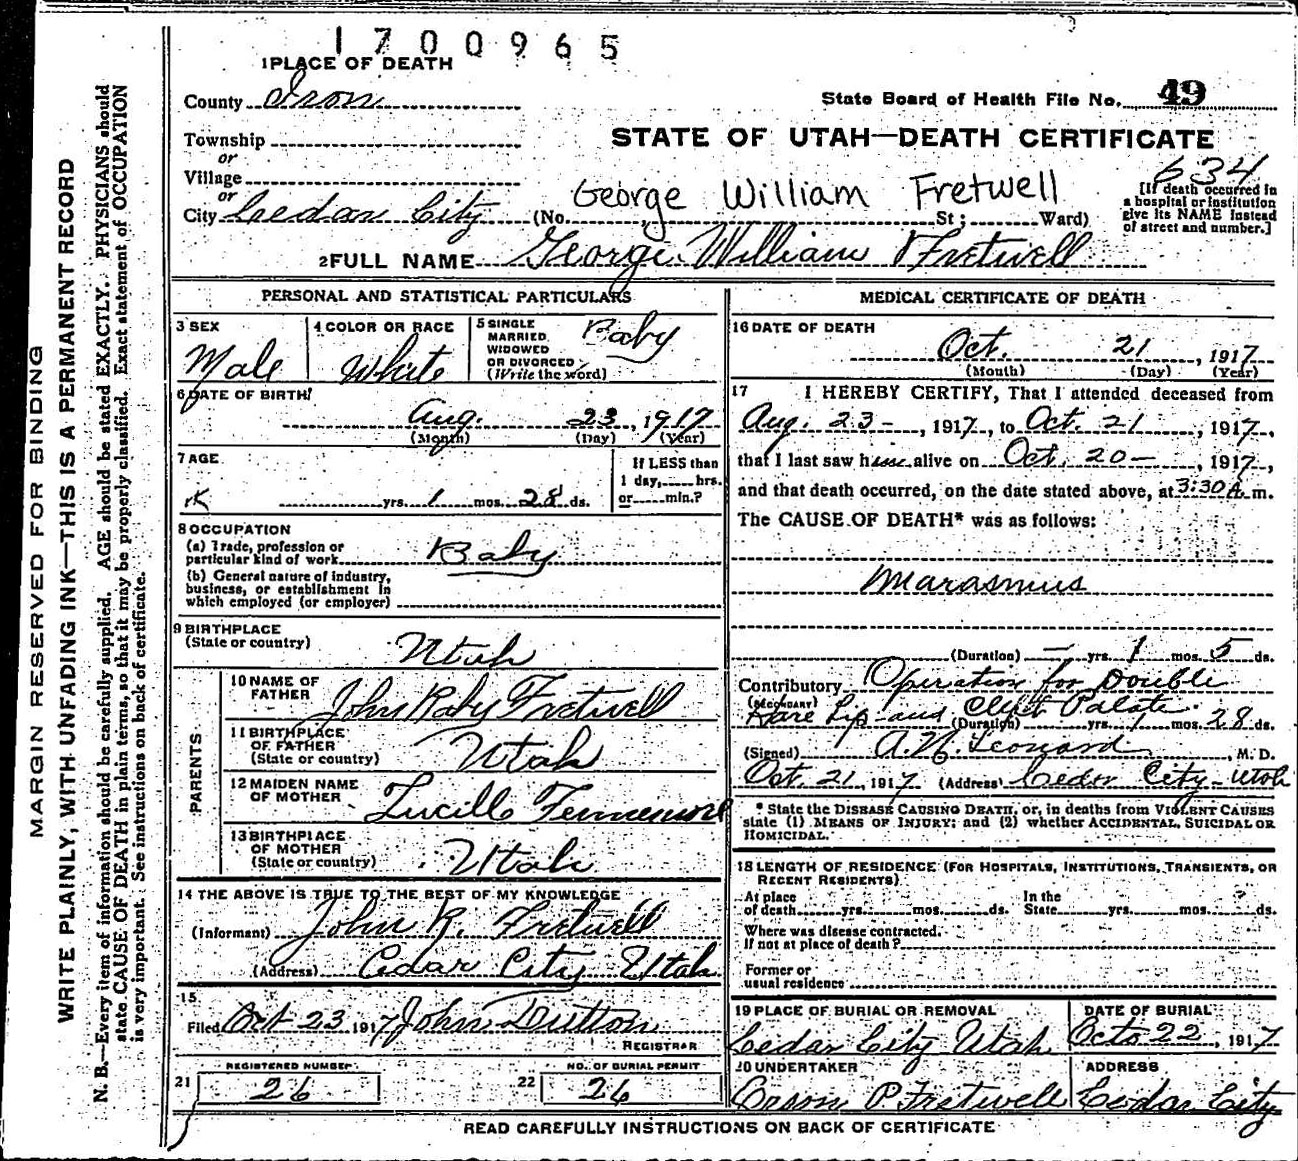 1700965
1 PLACE OF DEATH
County Iron
State Board of Health File No. 49
Township
or
Village
or
City Cedar City (No. St; Ward)
STATE OF UTAH—DEATH CERTIFICATE
634
[If death occurred in
a hospital or institution
give its NAME instead
of street and number.]
George William Fretwell
2 FULL NAME George William Fretwell
PERSONAL AND STATISTICAL PARTICULARS
3 SEX
Male
4 COLOR OR RACE
White
5 SINGLE
MARRIED
WIDOWED
OR DIVORCED
(Write the word)
Baby
6 DATE OF BIRTH
Aug. 23, 1917
(Month) (Day) (Year)
7 AGE
yrs. 1 mos. 28 ds.
If LESS than
1 day, hrs.
or min.?
8 OCCUPATION
(a) Trade, profession or
particular kind of work Baby
(b) General nature of industry,
business, or establishment in
which employed (or employer)
9 BIRTHPLACE
(State or country) Utah
PARENTS
10 NAME OF
FATHER John Raby Fretwell
11 BIRTHPLACE
OF FATHER
(State or country) Utah
12 MAIDEN NAME
OF MOTHER Lucille Fennemore
13 BIRTHPLACE
OF MOTHER
(State or country) Utah
14 THE ABOVE IS TRUE TO THE BEST OF MY KNOWLEDGE
(Informant) John R. Fretwell
(Address) Cedar City Utah
15
Filed Oct 23 1917 John Dutton
REGISTRAR
REGISTERED NUMBER
21 26
NO. OF BURIAL PERMIT
22 26
MEDICAL CERTIFICATE OF DEATH
16 DATE OF DEATH
Oct. 21, 1917
(Month) (Day) (Year)
17 I HEREBY CERTIFY, That I attended deceased from
Aug. 23-, 1917, to Oct. 21, 1917,
that I last saw him alive on Oct. 20-, 1917,
and that death occurred, on the date stated above, at 3:30 A. m.
The CAUSE OF DEATH* was as follows:
Marasmus
(Duration) - yrs. 1 mos. 5 ds.
Contributory Operation for Double
(SECONDARY)
Hare Lip and Cleft Palate.
(Duration) yrs. 1 mos. 28 ds.
(Signed) A. N. Leonard, M. D.
Oct. 21, 1917 (Address) Cedar City-Utah
* State the DISEASE CAUSING DEATH, or, in deaths from VIOLENT CAUSES
state (1) MEANS OF INJURY; and (2) whether ACCIDENTAL, SUICIDAL OR
HOMICIDAL.
18 LENGTH OF RESIDENCE (FOR HOSPITALS, INSTITUTIONS, TRANSIENTS, OR
RECENT RESIDENTS)
At place
of death yrs. mos. ds.
In the
State yrs. mos. ds.
Where was disease contracted.
If not at place of death?
Former or
usual residence
19 PLACE OF BURIAL OR REMOVAL
Cedar City Utah
DATE OF BURIAL
Octo 22, 1917
20 UNDERTAKER
Orson P. Fretwell
ADDRESS
Cedar City
READ CAREFULLY INSTRUCTIONS ON BACK OF CERTIFICATE
MARGIN RESERVED FOR BINDING
WRITE PLAINLY, WITH UNFADING INK—THIS IS A PERMANENT RECORD
N. B.—Every item of information should be carefully supplied. AGE should be stated EXACTLY. PHYSICIANS should
state CAUSE OF DEATH in plain terms, so that it may be properly classified. Exact statement of OCCUPATION
is very important. See instructions on back of certificate.